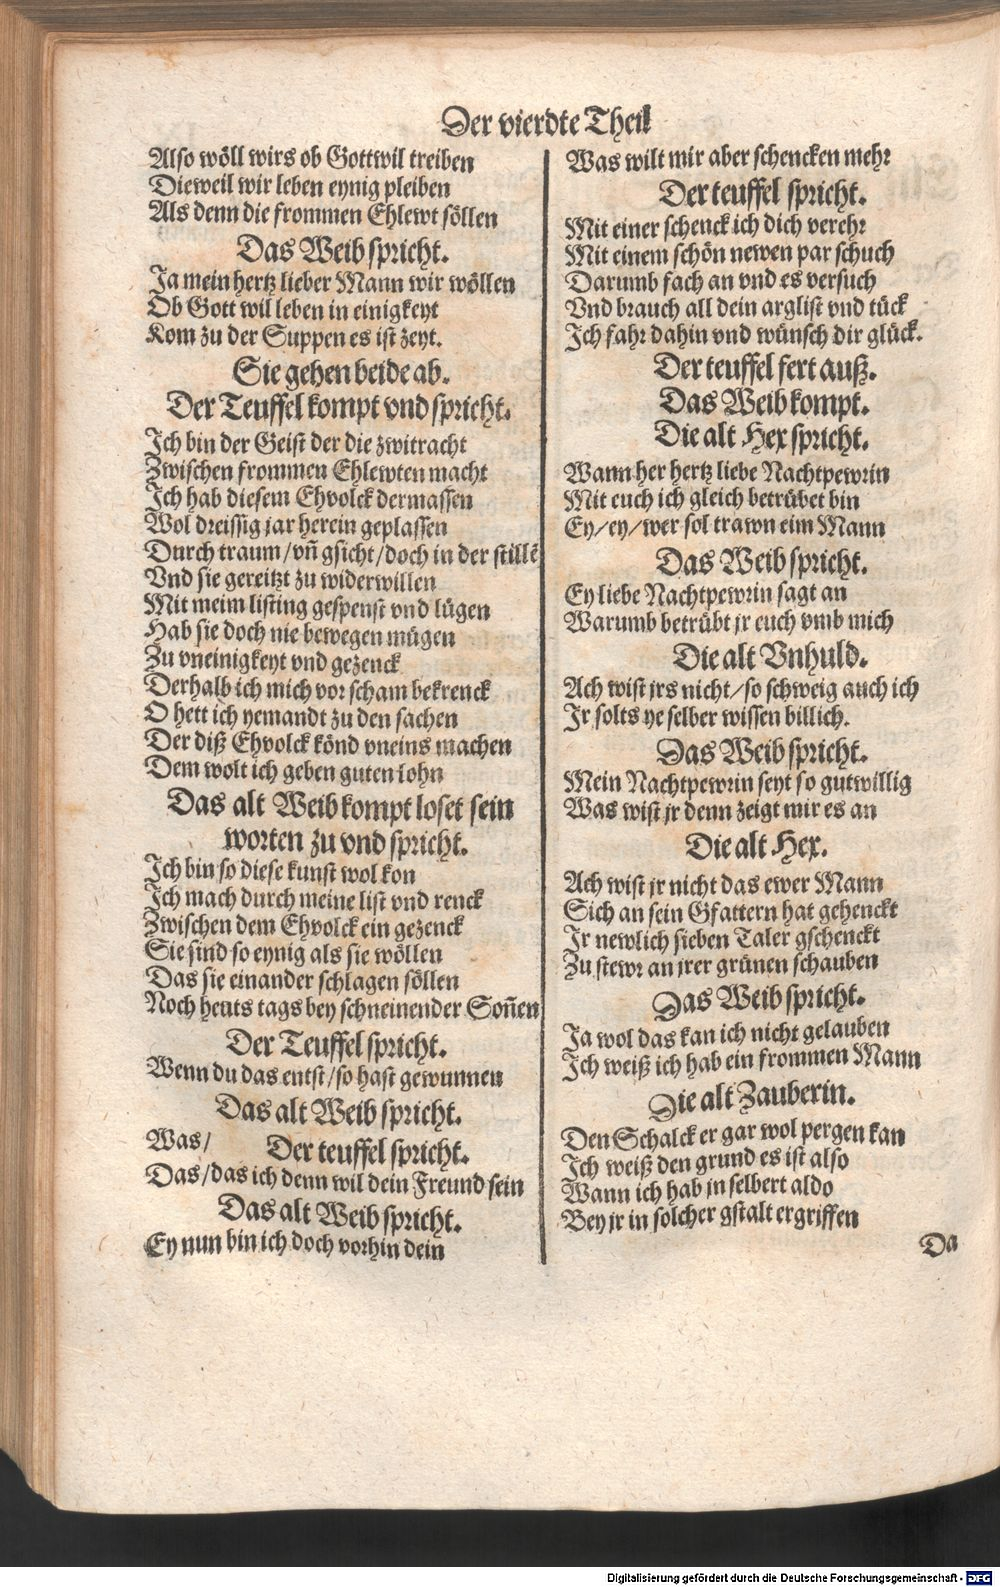 Der vierdte Theil
Also wöll wirs ob Gottwil treiben
Dieweil wir leben eynig pleiben
Als denn die frommen Ehlewt söllen
Das Weib spricht.
Ja mein hertz lieber Mann wir wöllen
Ob Gott wil leben in einigkeyt
Kom zu der Suppen es ist zeyt.
Sie gehen beide ab.
Der Teuffel kompt vnd spricht.
Ich bin der Geist der die zwitracht
Zwischen frommen Ehlewten macht
Ich hab diesem Ehvolck dermassen
Wol dreissig jar herein geplassen
Durch traum/vn̄ gsicht/doch in der stillē
Vnd sie gereitzt zu widerwillen
Mit meim listing gespenst vnd lügen
Hab sie doch nie bewegen mügen
Zu vneinigkeyt vnd gezenck
Derhalb ich mich vor scham bekrenck
O hett ich yemandt zu den sachen
Der diß Ehvolck könd vneins machen
Dem wolt ich geben guten lohn
Das alt Weib kompt loset sein
worten zu vnd spricht.
Ich bin so diese kunst wol kon
Ich mach durch meine list vnd renck
Zwischen dem Ehvolck ein gezenck
Sie sind so eynig als sie wöllen
Das sie einander schlagen söllen
Noch heuts tags bey schneinender Son̄en
Der Teuffel spricht.
Wenn du das entst/so hast gewunnen
Das alt Weib spricht.
Was/ Der teuffel spricht.
Das/das ich denn wil dein Freund sein
Das alt Weib spricht.
Ey nun bin ich doch vorhin dein
Was wilt mir aber schencken mehr
Der teuffel spricht.
Mit einer schenck ich dich verehr
Mit einem schön newen par schuch
Darumb fach an vnd es versuch
Vnd brauch all dein arglist vnd tück
Ich fahr dahin vnd wünsch dir glück.
Der teuffel fert auß.
Das Weib kompt.
Die alt Hex spricht.
Wann her hertz liebe Nachtpewrin
Mit euch ich gleich betrübet bin
Ey/ey/wer sol trawn eim Mann
Das Weib spricht.
Ey liebe Nachtpewrin sagt an
Warumb betrübt jr euch vmb mich
Die alt Vnhuld.
Ach wist jrs nicht/so schweig auch ich
Jr solts ye selber wissen billich.
Das Weib spricht.
Mein Nachtpewrin seyt so gutwillig
Was wist jr denn zeigt mir es an
Die alt Hex.
Ach wist jr nicht das ewer Mann
Sich an sein Gfattern hat gehenckt
Jr newlich sieben Taler gschenckt
Zu stewr an jrer grünen schauben
Das Weib spricht.
Ja wol das kan ich nicht gelauben
Ich weiß ich hab ein frommen Mann
Die alt Zauberin.
Den Schalck er gar wol pergen kan
Ich weiß den grund es ist also
Wann ich hab jn selbert aldo
Bey jr in solcher gstalt ergriffen
Da
Digitalisierung gefördert durch die Deutsche Forschungsgemeinschaft - DFG